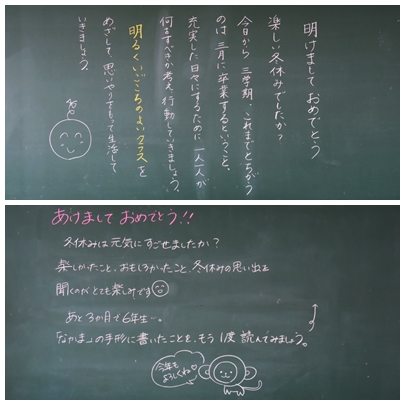 明けましておめでとう
楽しい冬休みでしたか？
今日から三学期、これまでとちがう
のは三月に卒業するということ。
充実した日々にするために一人一人が
何をすべきか考え、行動していきましょう。
明るくいごこちのよいクラスを
めざして、思いやりをもって生活して
いきましょう。
あけまして おめでとう!!
冬休みは元気にすごせましたか？
楽しかったこと、おもしろかったこと、冬休みの思い出を
聞くのがとても楽しみです
あと3か月で6年生…。
「なかま」の手形に書いたことを、もう1度読んでみましょう。
今年も
よろしくね♡